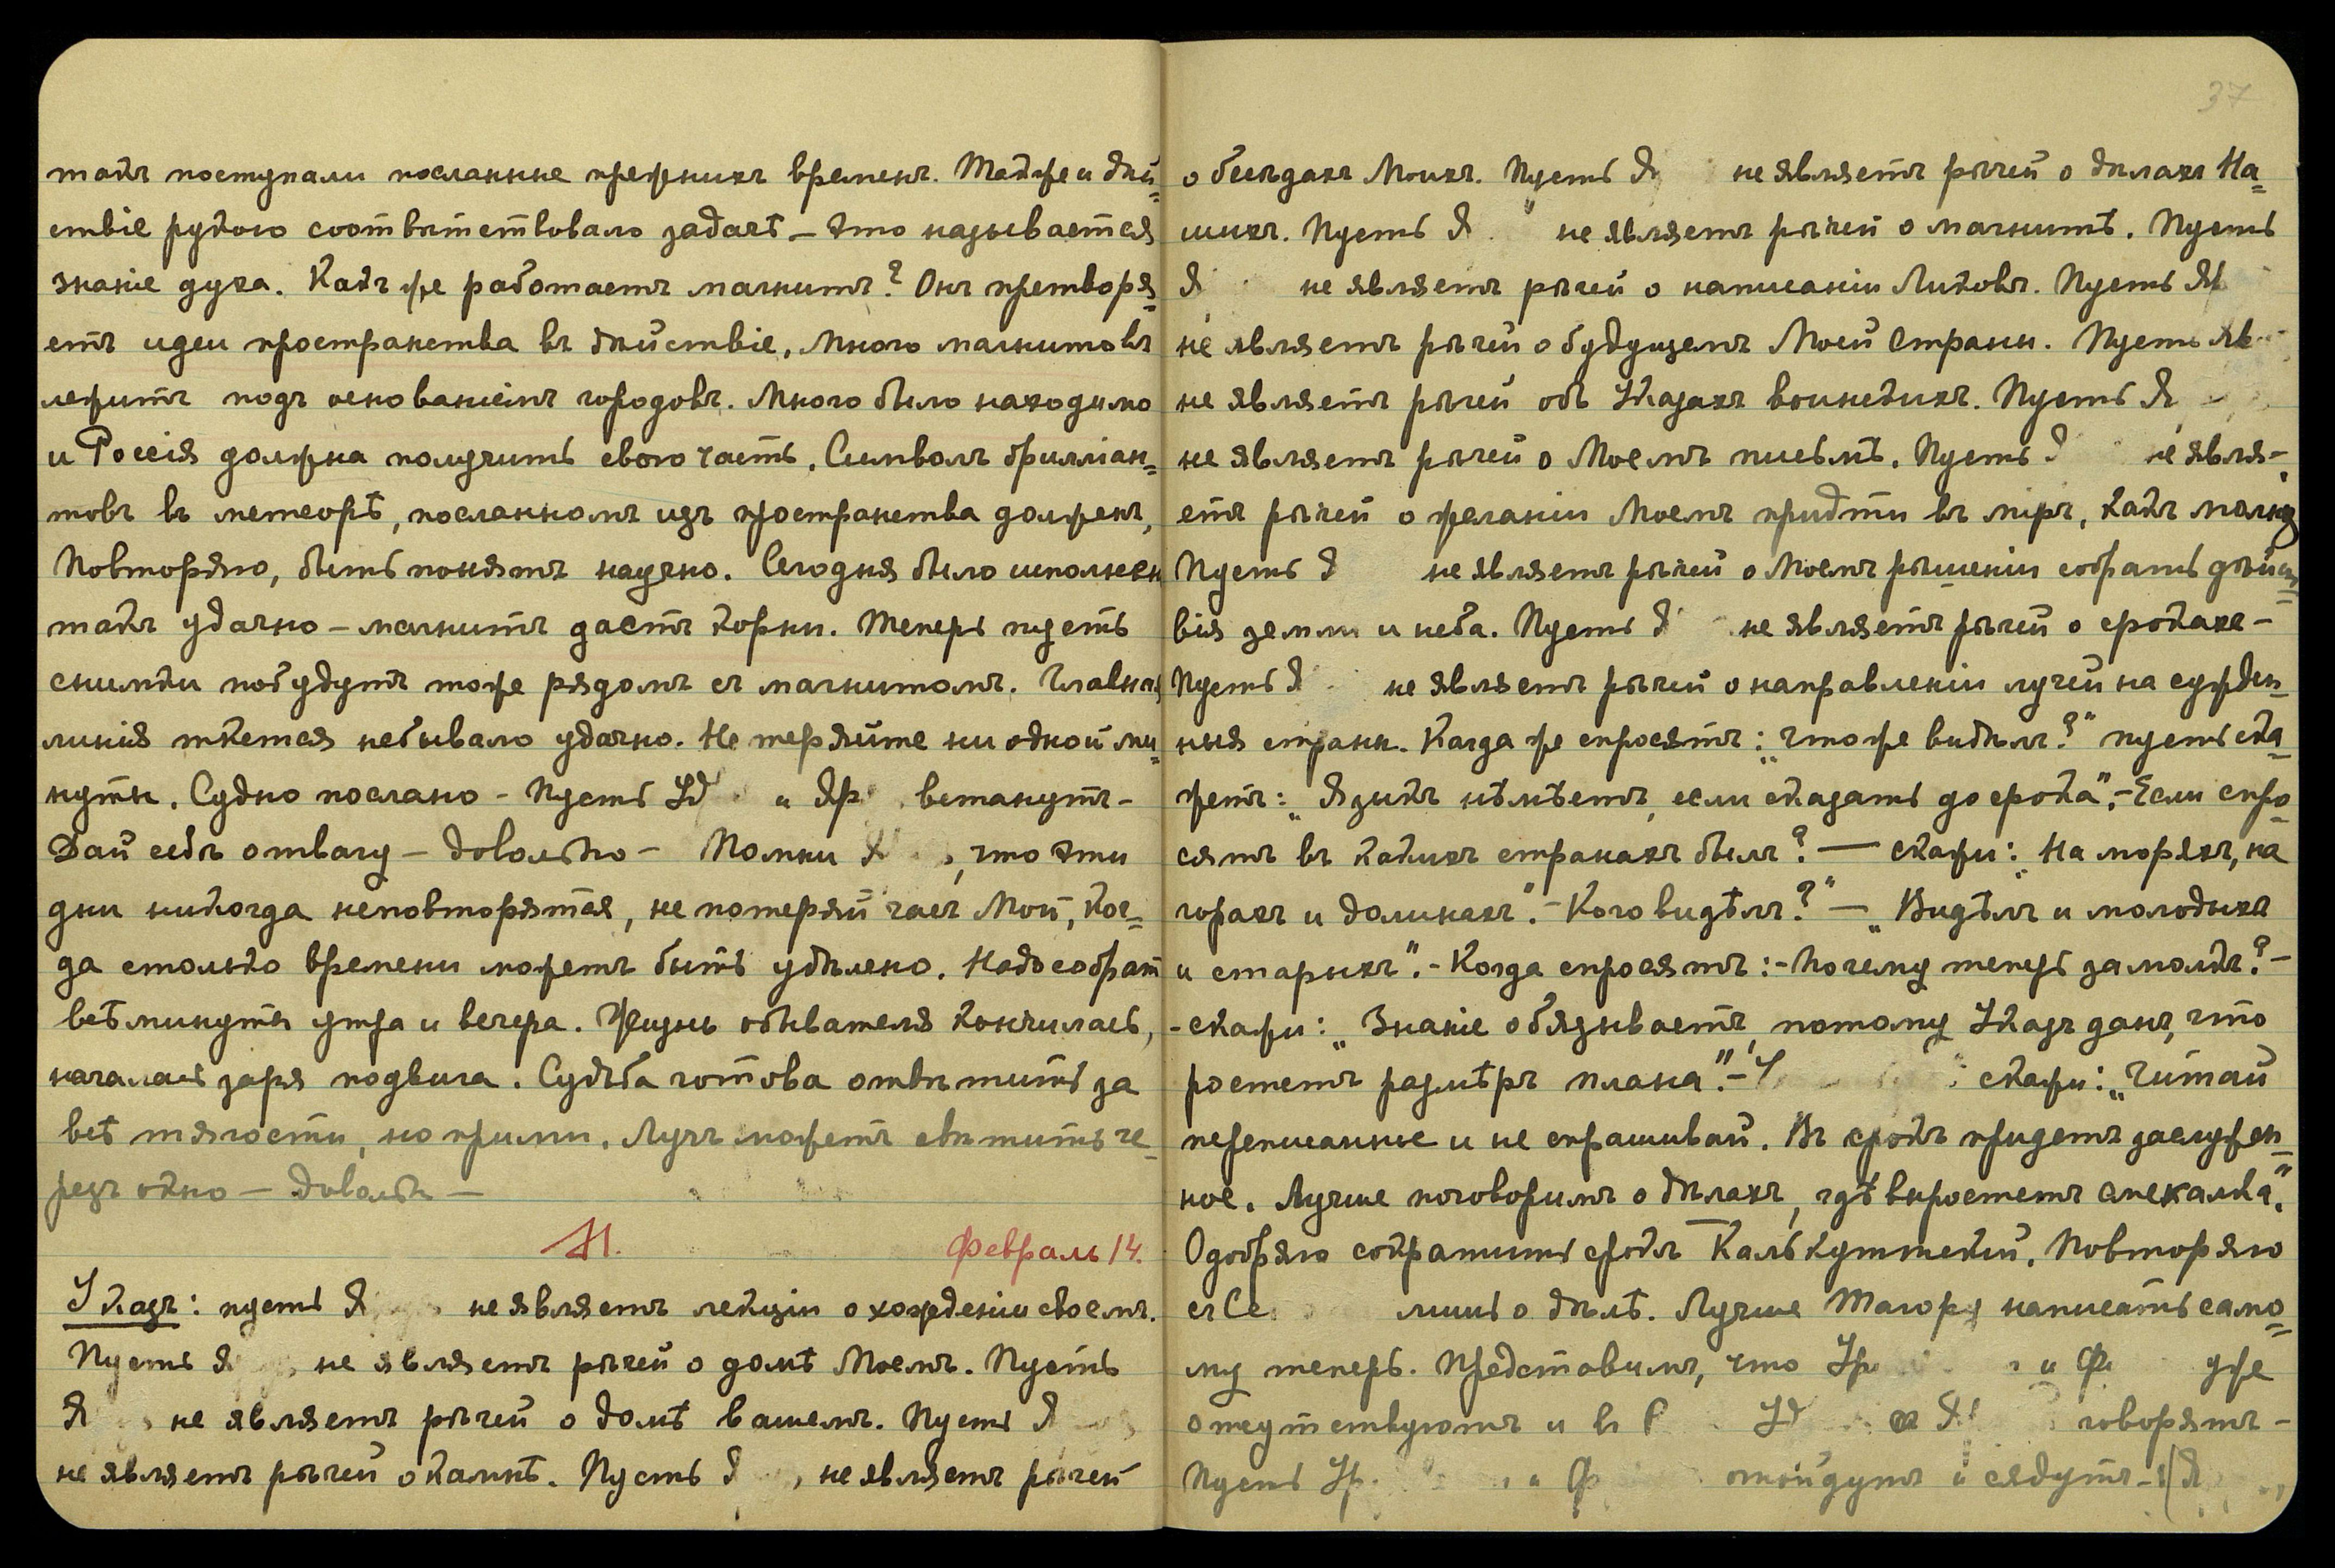 такъ поступали посланные прежнихъ временъ. Также и дѣй=
ствіе рукою соотвѣтствовало задачѣ – это называется
знаніе духа. Какъ же работаетъ магнитъ? Онъ претворя=
етъ идеи пространства въ дѣйствіе, много магнитовъ
лежитъ подъ основаніемъ городовъ. Много было находимо
и Россія должна получить свою часть. Символъ брилліан=
товъ въ метеорѣ, посланномъ изъ пространства долженъ,
Повторяю, быть понятъ научно. Сегодня было исполнен
такъ удачно – магнитъ дастъ корни. Теперь пусть
снимки побудутъ тоже рядомъ съ магнитомъ. Главная
линія ткется небывало удачно. Не теряйте ни одной ми=
нуты. Судно послано – Пусть Уд и Яр встанутъ –
Дай себѣ отвагу – довольно – Помни Я , что эти
дни никогда неповторятся, не потеряй часъ Мой, ког=
да столько времени можетъ быть удѣлено. Надо собрат
всѣ минуты утра и вечера. Жизнь обывателя кончилась,
началась заря подвига. Судьба готова отвѣтить за
всѣ тягости, но прими. Лучъ можетъ свѣтить че=
резъ окно – довольн –
М. Февраль 14.
Указъ: пусть Я не являетъ лекціи о хожденіи своемъ.
Пусть Я не являетъ рѣчей о домѣ Моемъ. Пусть
Я не являетъ рѣчей о домѣ вашемъ. Пусть Я
не являетъ рѣчей о камнѣ. Пусть Я , не являетъ рѣчей
37
о бесѣдахъ Моихъ. Пусть Я не являетъ рѣчей о дѣлахъ На=
шихъ. Пусть Я не являетъ рѣчей о магнитѣ. Пусть
Я не являетъ рѣчей о написаніи Ликовъ. Пусть Я
не являетъ рѣчей о будущемъ Моей Страны. Пусть Я
не являетъ рѣчей объ Указахъ воинскихъ. Пусть Я
не являетъ рѣчей о Моемъ письмѣ. Пусть Я не явля-
етъ рѣчей о желаніи Моемъ придти въ міръ, какъ молнія
Пусть Я не являетъ рѣчей о Моемъ рѣшеніи собрать дѣйст=
вія земли и неба. Пусть Я не являетъ рѣчей о срокахъ –
Пусть Я не являетъ рѣчей о направленіи лучей на сужден=
ныя страны. Когда же спросятъ: „что же видѣлъ?" пусть ска=
жетъ: „Языкъ нѣмѣетъ, если сказать до срока". – Если спро=
сятъ въ какихъ странахъ былъ? — скажи: „На моряхъ, на
горахъ и долинахъ". – Кого видѣлъ?" – „Видѣлъ и молодыхъ
и старыхъ". – Когда спросятъ: – Почему теперь замолкъ? –
– скажи: „Знаніе обязываетъ, потому Указъ данъ, что
ростетъ размѣръ плана". – скажи: „Читай
переписанные и не спрашивай. Въ срокъ придетъ заслужен=
ное. Лучше поговоримъ о дѣлахъ, гдѣ выростетъ смекалка".
Одобряю сократить срокъ Калькуттскій. Повторяю
съ Се лишь о дѣлѣ. Лучше Тагору написать само=
му теперь. Представимъ, что Ур и Ф уже
отсутствуютъ и въ Уд Я говорятъ –
Пусть Ур и Ф отойдутъ и сядутъ – (Я